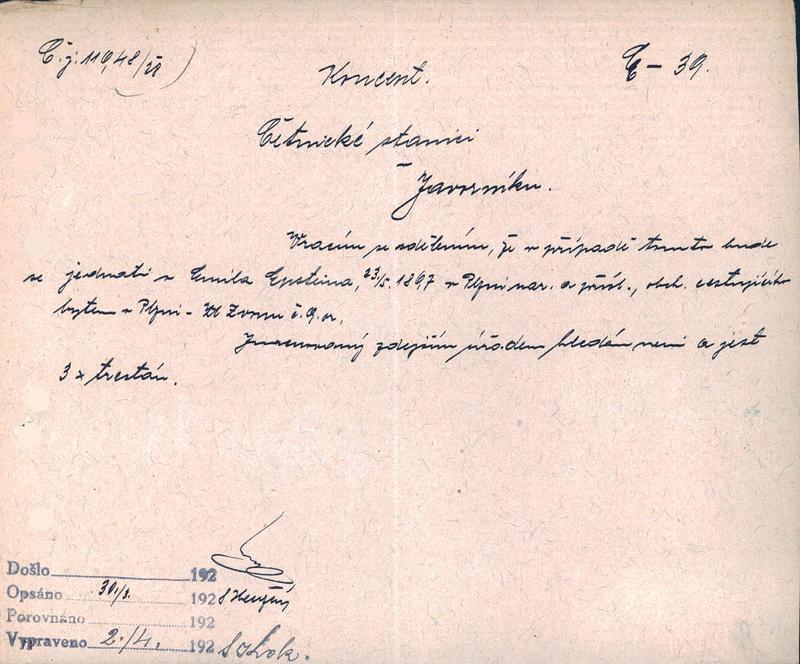 Č.j: 11648/28
E – 39.
Koncent.
Četnické stanici
Javorníku.
Vracím se sdělením, že v případě tomto bude
se jednati o Emila Epsteina, 23/5. 1897 v Plzni nar. a přísl., obch. cestujícího
bytem v Plzni -
Jmenovaný zdejším úřadem hledán není a jest
3 x trestán.
Došlo 192
Opsáno 30./3. 192
Porovnáno 192
Vypraveno 2./4. 192